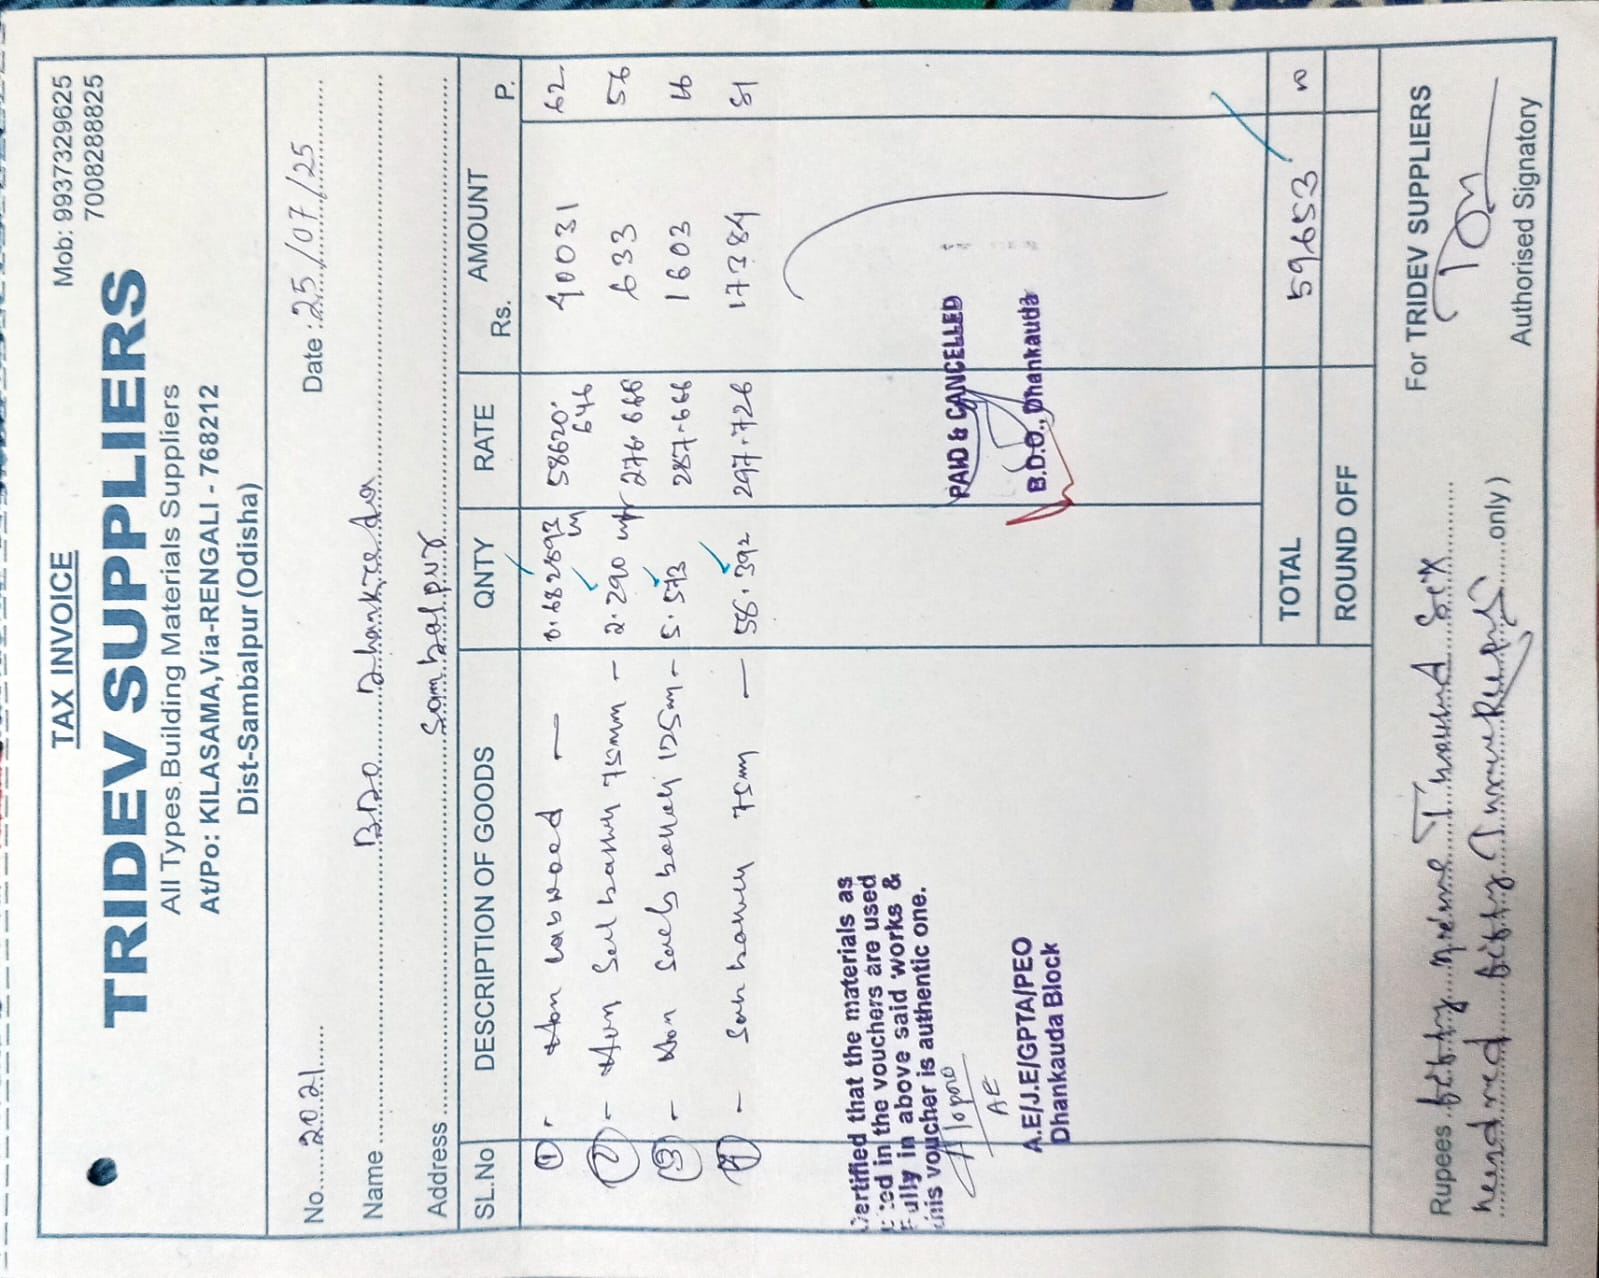 TAX INVOICE
Mob: 9937329625
7008288825
TRIDEV SUPPLIERS
All Types Building Materials Suppliers
At/Po: KILASAMA,Via-RENGALI - 768212
Dist-Sambalpur (Odisha)
No. 2021 Date : 25/07/25
Name BDO
Address Sambalpur
SL.No DESCRIPTION OF GOODS QNTY RATE AMOUNT
Rs. P.
1 - 58620. 646 40031 62
2 - 75mm - 2.290 276.666 633 56
3 - 125mm - 5.573 287.666 1603
4 - 75mm - 58.392 297.726 17384 51
Certified that the materials as
used in the vouchers are used
Fully in above said works &
this voucher is authentic one.
AE
A.E/J.E/GPTA/PEO
Dhankauda Block
PAID & CANCELLED
B.D.O., Dhankauda
TOTAL 59653
ROUND OFF
Rupees fifty nine Thousand Six
hundred fifty Three Rupees only)
For TRIDEV SUPPLIERS
Authorised Signatory